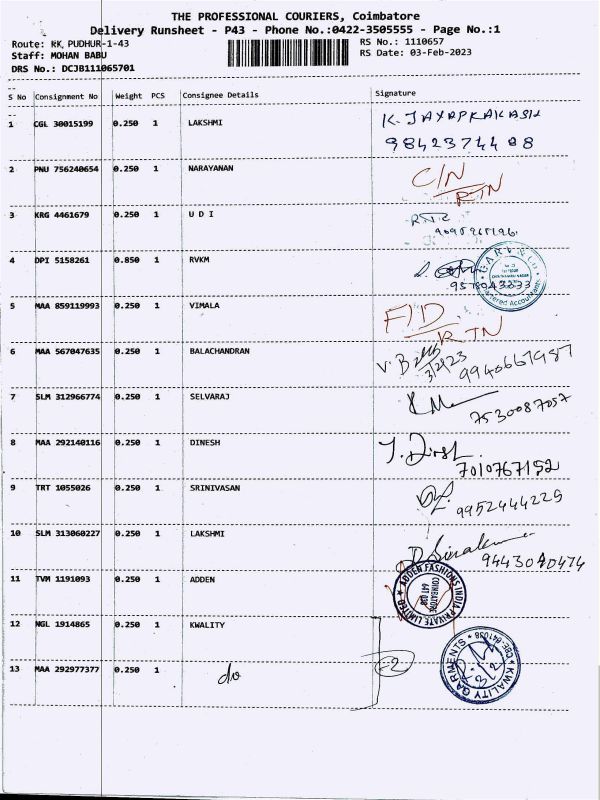 THE PROFESSIONAL COURIERS, Coimbatore
Delivery Runsheet - P43 - Phone No.:0422-3505555 - Page No.:1
Route: KK PUDHUR-1-43 RS No.: 1110657
Staff: MOHAN BABU RS Date: 03-Feb-2023
DRS No.: DCJB111065701
S No Consignment No Weight PCS Consignee Details Signature
1 CGL 30015199 0.250 1 LAKSHMI K. JAYAPRAKASH
9842374408
2 PNU 756240654 0.250 1 NARAYANAN C/N
RTN
3 KRG 4461679 0.250 1 U D I
4 DPI 5158261 0.850 1 RVKM
5 MAA 859119993 0.250 1 VIMALA F/D
RTN
6 MAA 567047635 0.250 1 BALACHANDRAN
3/2/23
7 SLM 312966774 0.250 1 SELVARAJ
7530087057
8 MAA 292140116 0.250 1 DINESH
7010767152
9 TRT 1055026 0.250 1 SRINIVASAN
9952444225
10 SLM 313060227 0.250 1 LAKSHMI
9443040474
11 TVM 1191093 0.250 1 ADDEN ADDEN FASHIONS INDIA PRIVATE LIMITED
COIMBATORE
641 038
12 NGL 1914865 0.250 1 KWALITY
13 MAA 292977377 0.250 1 do KWALITY GARMENTS CBE-641038